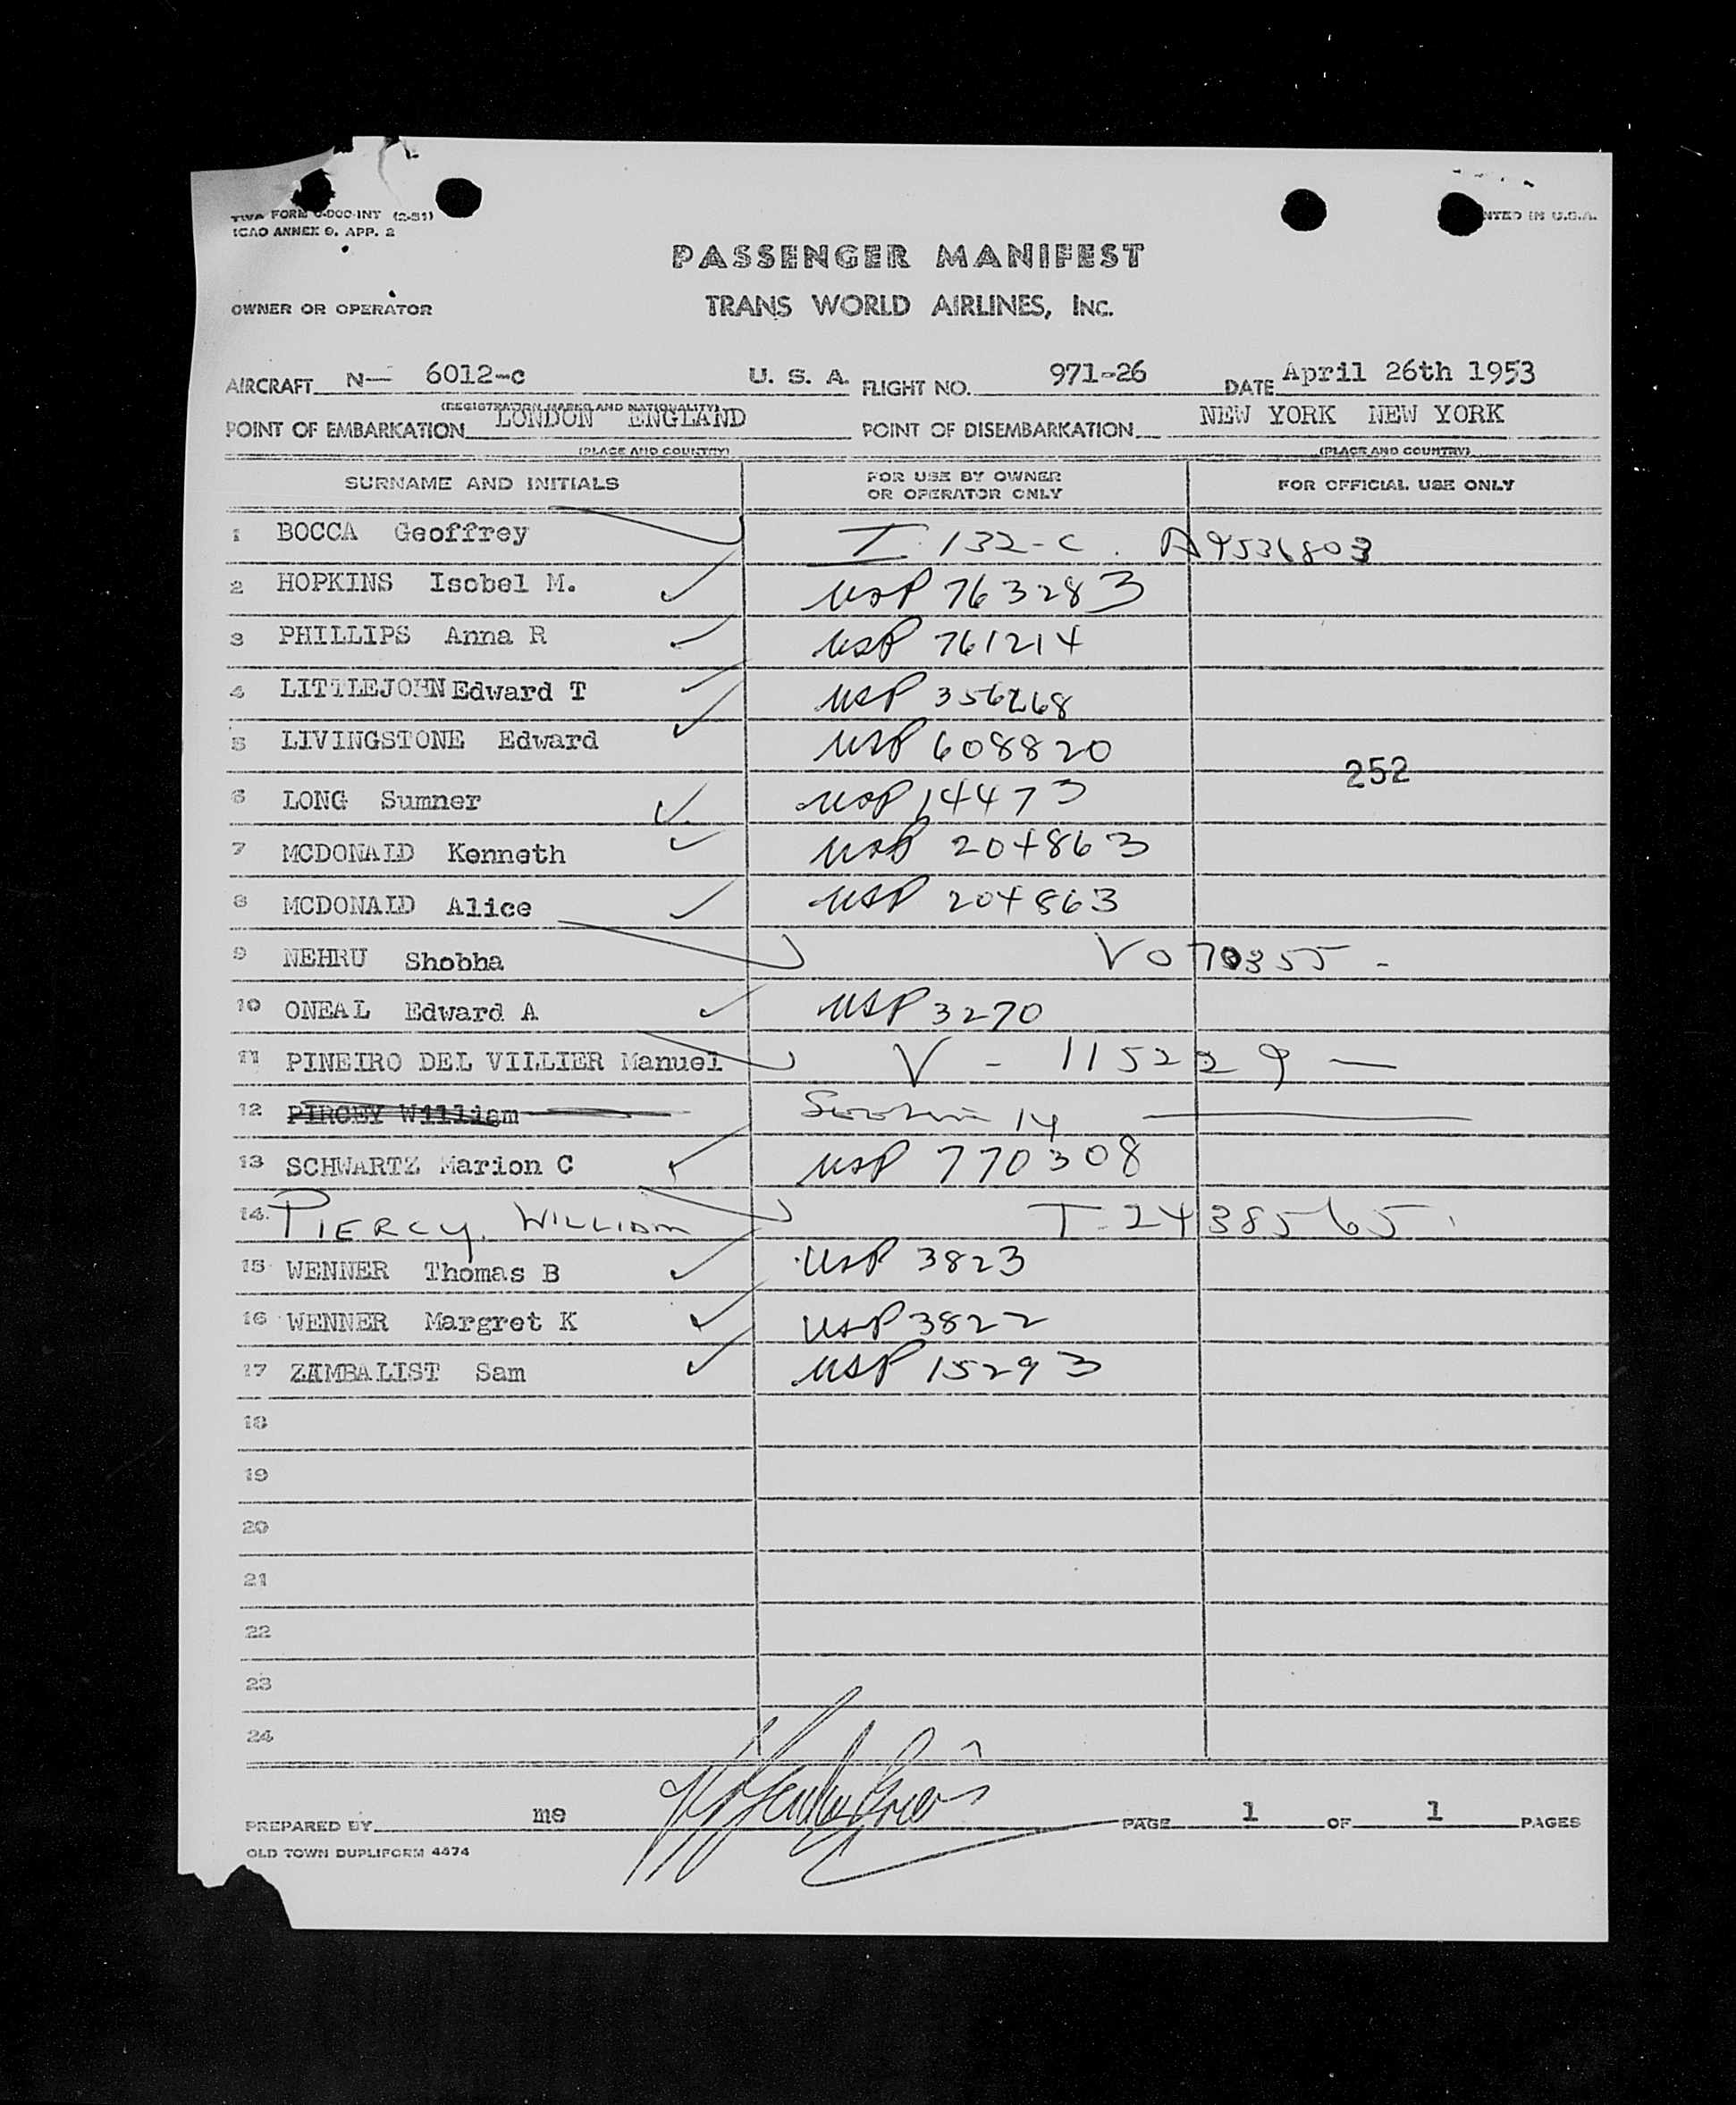 TWA FORM O-DOC-INT (2-51)
ICAO ANNEX 9. APP. 2
NTED IN U.S.A.
PASSENGER MANIFEST
OWNER OR OPERATOR
TRANS WORLD AIRLINES, INC.
AIRCRAFT N— 6012-c U. S. A. FLIGHT NO. 971-26 DATE April 26th 1953
(REGISTRATION MARKS AND NATIONALITY)
POINT OF EMBARKATION LONDON ENGLAND POINT OF DISEMBARKATION NEW YORK NEW YORK
(PLACE AND COUNTRY) (PLACE AND COUNTRY)
SURNAME AND INITIALS FOR USE BY OWNER OR OPERATOR ONLY FOR OFFICIAL USE ONLY
1 BOCCA Geoffrey I 132-C. A9536803
2 HOPKINS Isobel M. USP 763283
3 PHILLIPS Anna R USP 761214
4 LITTLEJOHN Edward T USP 356268
5 LIVINGSTONE Edward USP 608820
252
6 LONG Sumner USP 14473
7 MCDONALD Kenneth USP 204863
8 MCDONALD Alice USP 204863
9 NEHRU Shobha V070355 -
10 ONEAL Edward A USP 3270
11 PINEIRO DEL VILLIER Manuel V - 115229 —
12 PIRCEY William 14
13 SCHWARTZ Marion C USP 770308
14. PIERCY, WILLIAM T-2438565
15 WENNER Thomas B USP 3823
16 WENNER Margret K USP 3822
17 ZAMBALIST Sam USP 15293
18
19
20
21
22
23
24
PREPARED BY me PAGE 1 OF 1 PAGES
OLD TOWN DUPLIFORM 4474